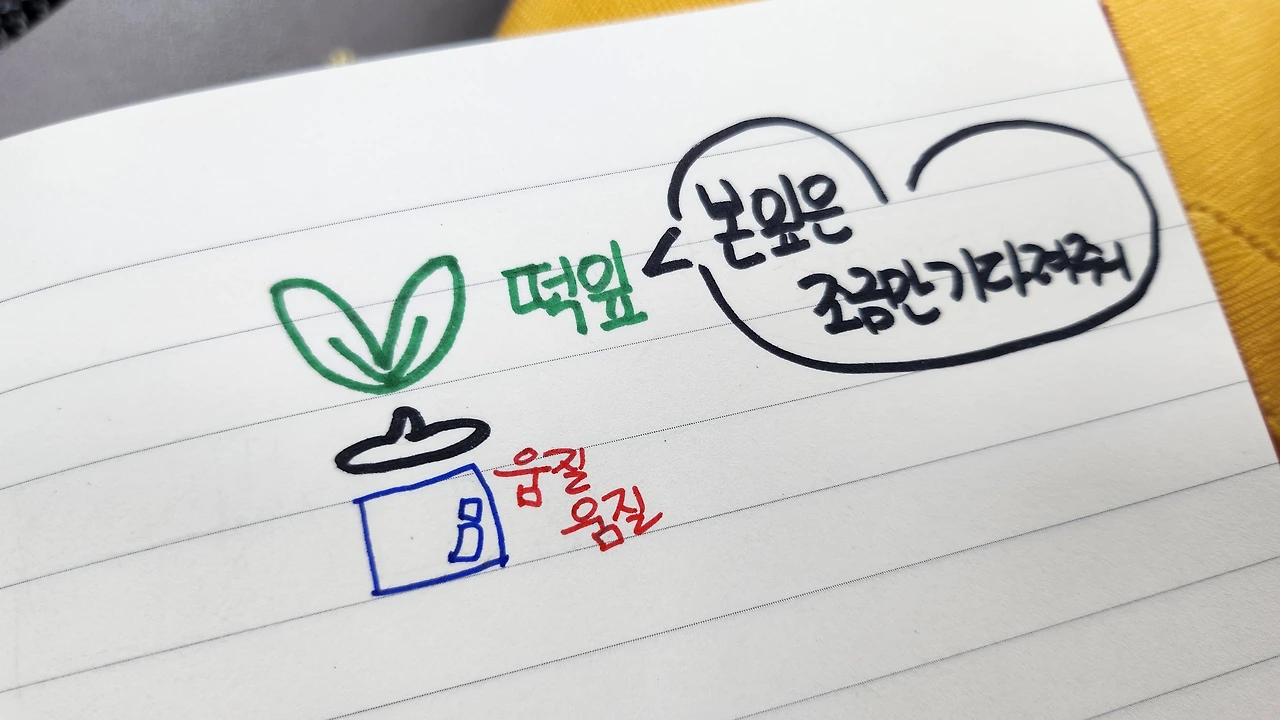 떡잎
본잎은
조금만 기다려줘
움질
움질